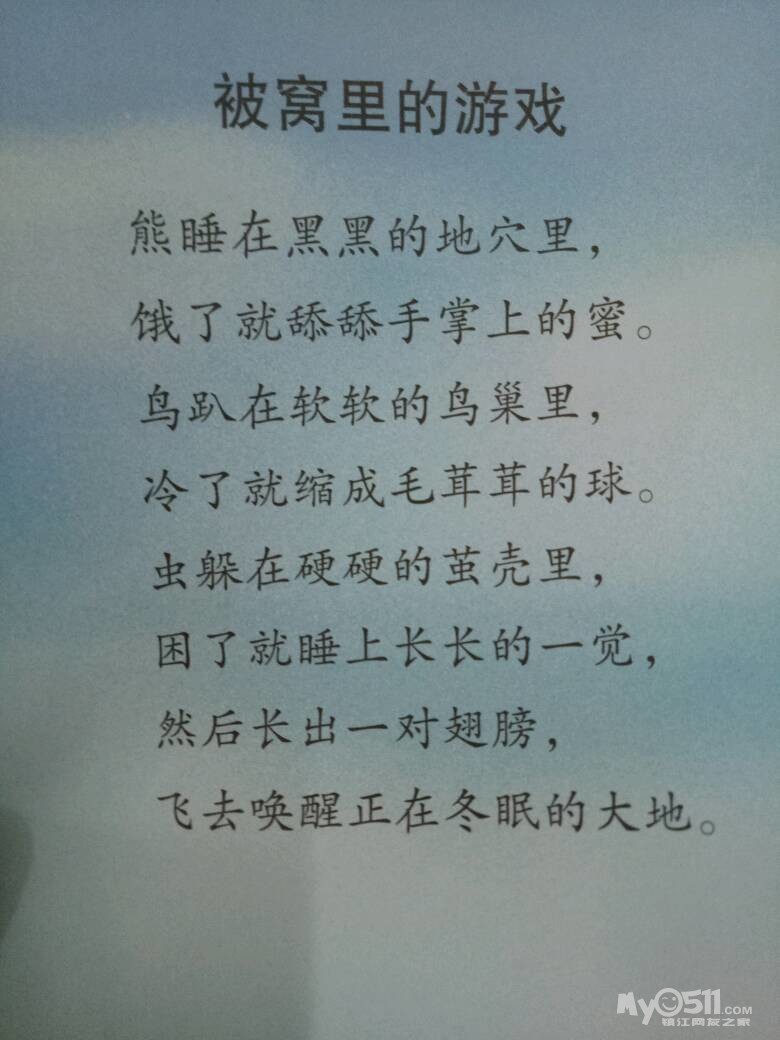 被窝里的游戏
熊睡在黑黑的地穴里，
饿了就舔舔手掌上的蜜。
鸟趴在软软的鸟巢里，
冷了就缩成毛茸茸的球。
虫躲在硬硬的茧壳里，
困了就睡上长长的一觉，
然后长出一对翅膀，
飞去唤醒正在冬眠的大地。
My0511.com
镇江网友之家